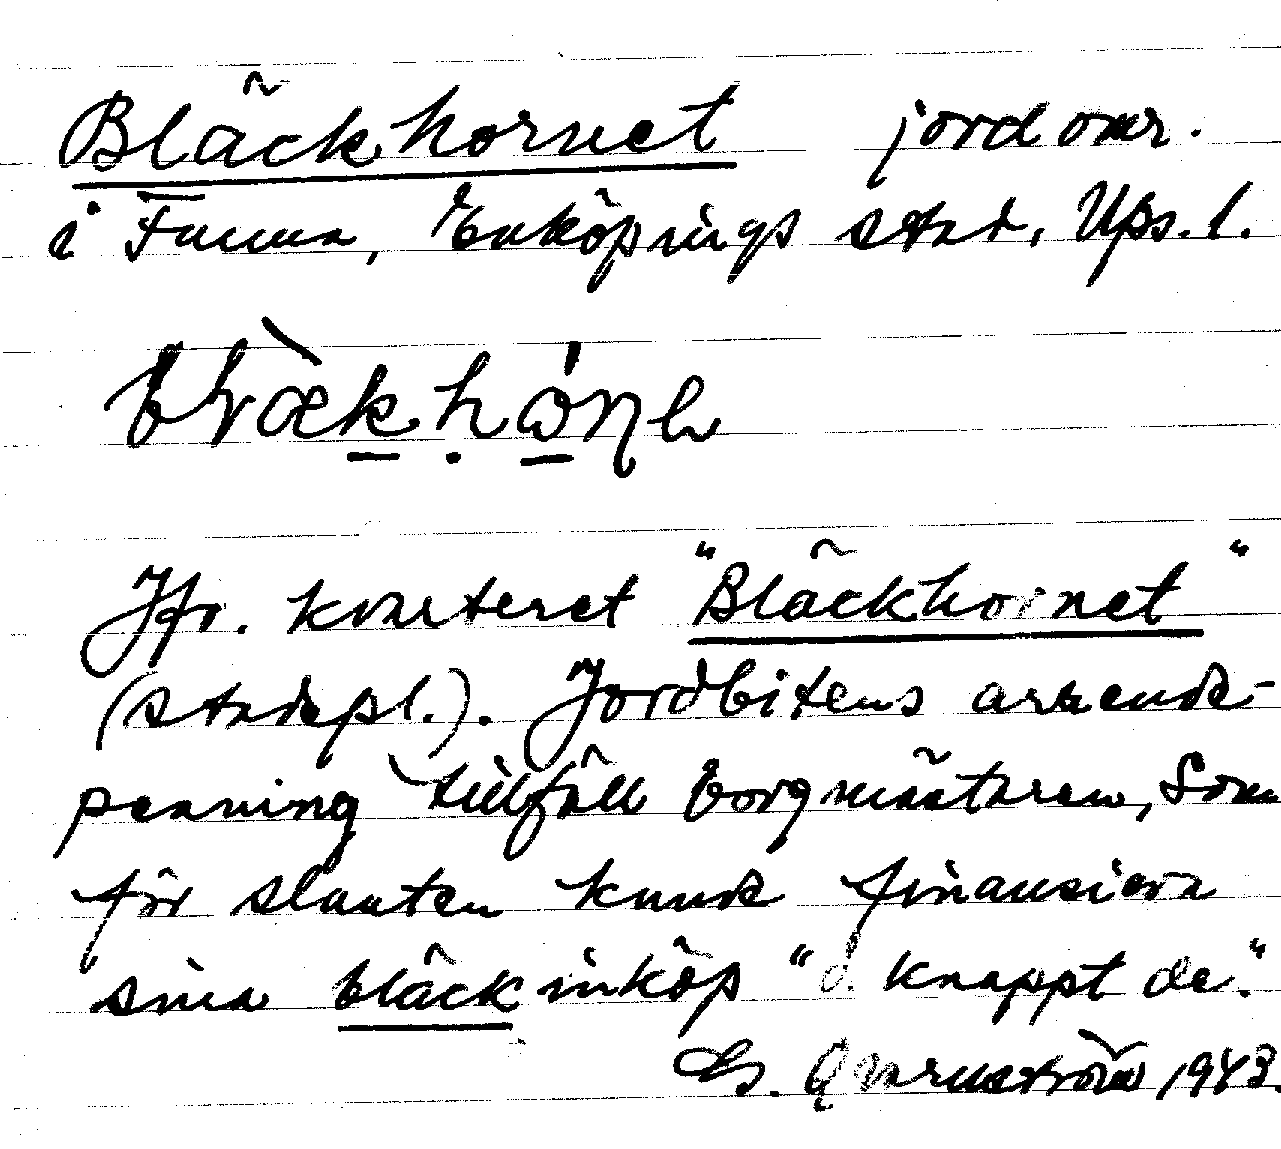 Bläckhornet jordomr.
i Fanna, Enköpings stad, Ups. l.
Jfr. kvarteret "Bläckhornet"
(stadspl.). Jordbitens arrende-
penning tillföll borgmästaren, som
för slanten kunde finansiera
sina bläckinköp "o. knappt de."
G. Qvarnström 1943.